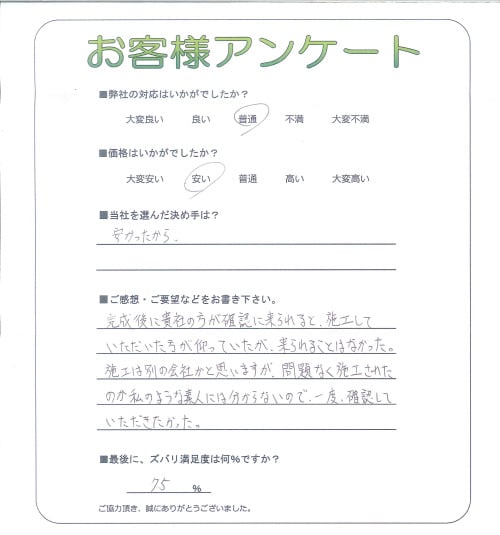 お客様アンケート
■弊社の対応はいかがでしたか？
大変良い 良い 普通 不満 大変不満
■価格はいかがでしたか？
大変安い 安い 普通 高い 大変高い
■当社を選んだ決め手は？
安かったから．
■ご感想・ご要望などをお書き下さい。
完成後に貴社の方が確認に来られると、施工して
いただいた方が仰っていたが、来られることはなかった。
施工は別の会社かと思いますが、問題なく施工された
のか私のような素人には分からないので、一度、確認して
いただきたかった。
■最後に、ズバリ満足度は何%ですか？
75 %
ご協力頂き、誠にありがとうございました。